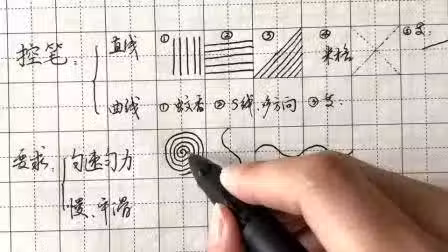 控笔： 直线 ① ② ③ ④ 米格 ⑤
曲线 ① 蚊香 ② S线，多方向 ③
要求： 匀速匀力
慢、平滑